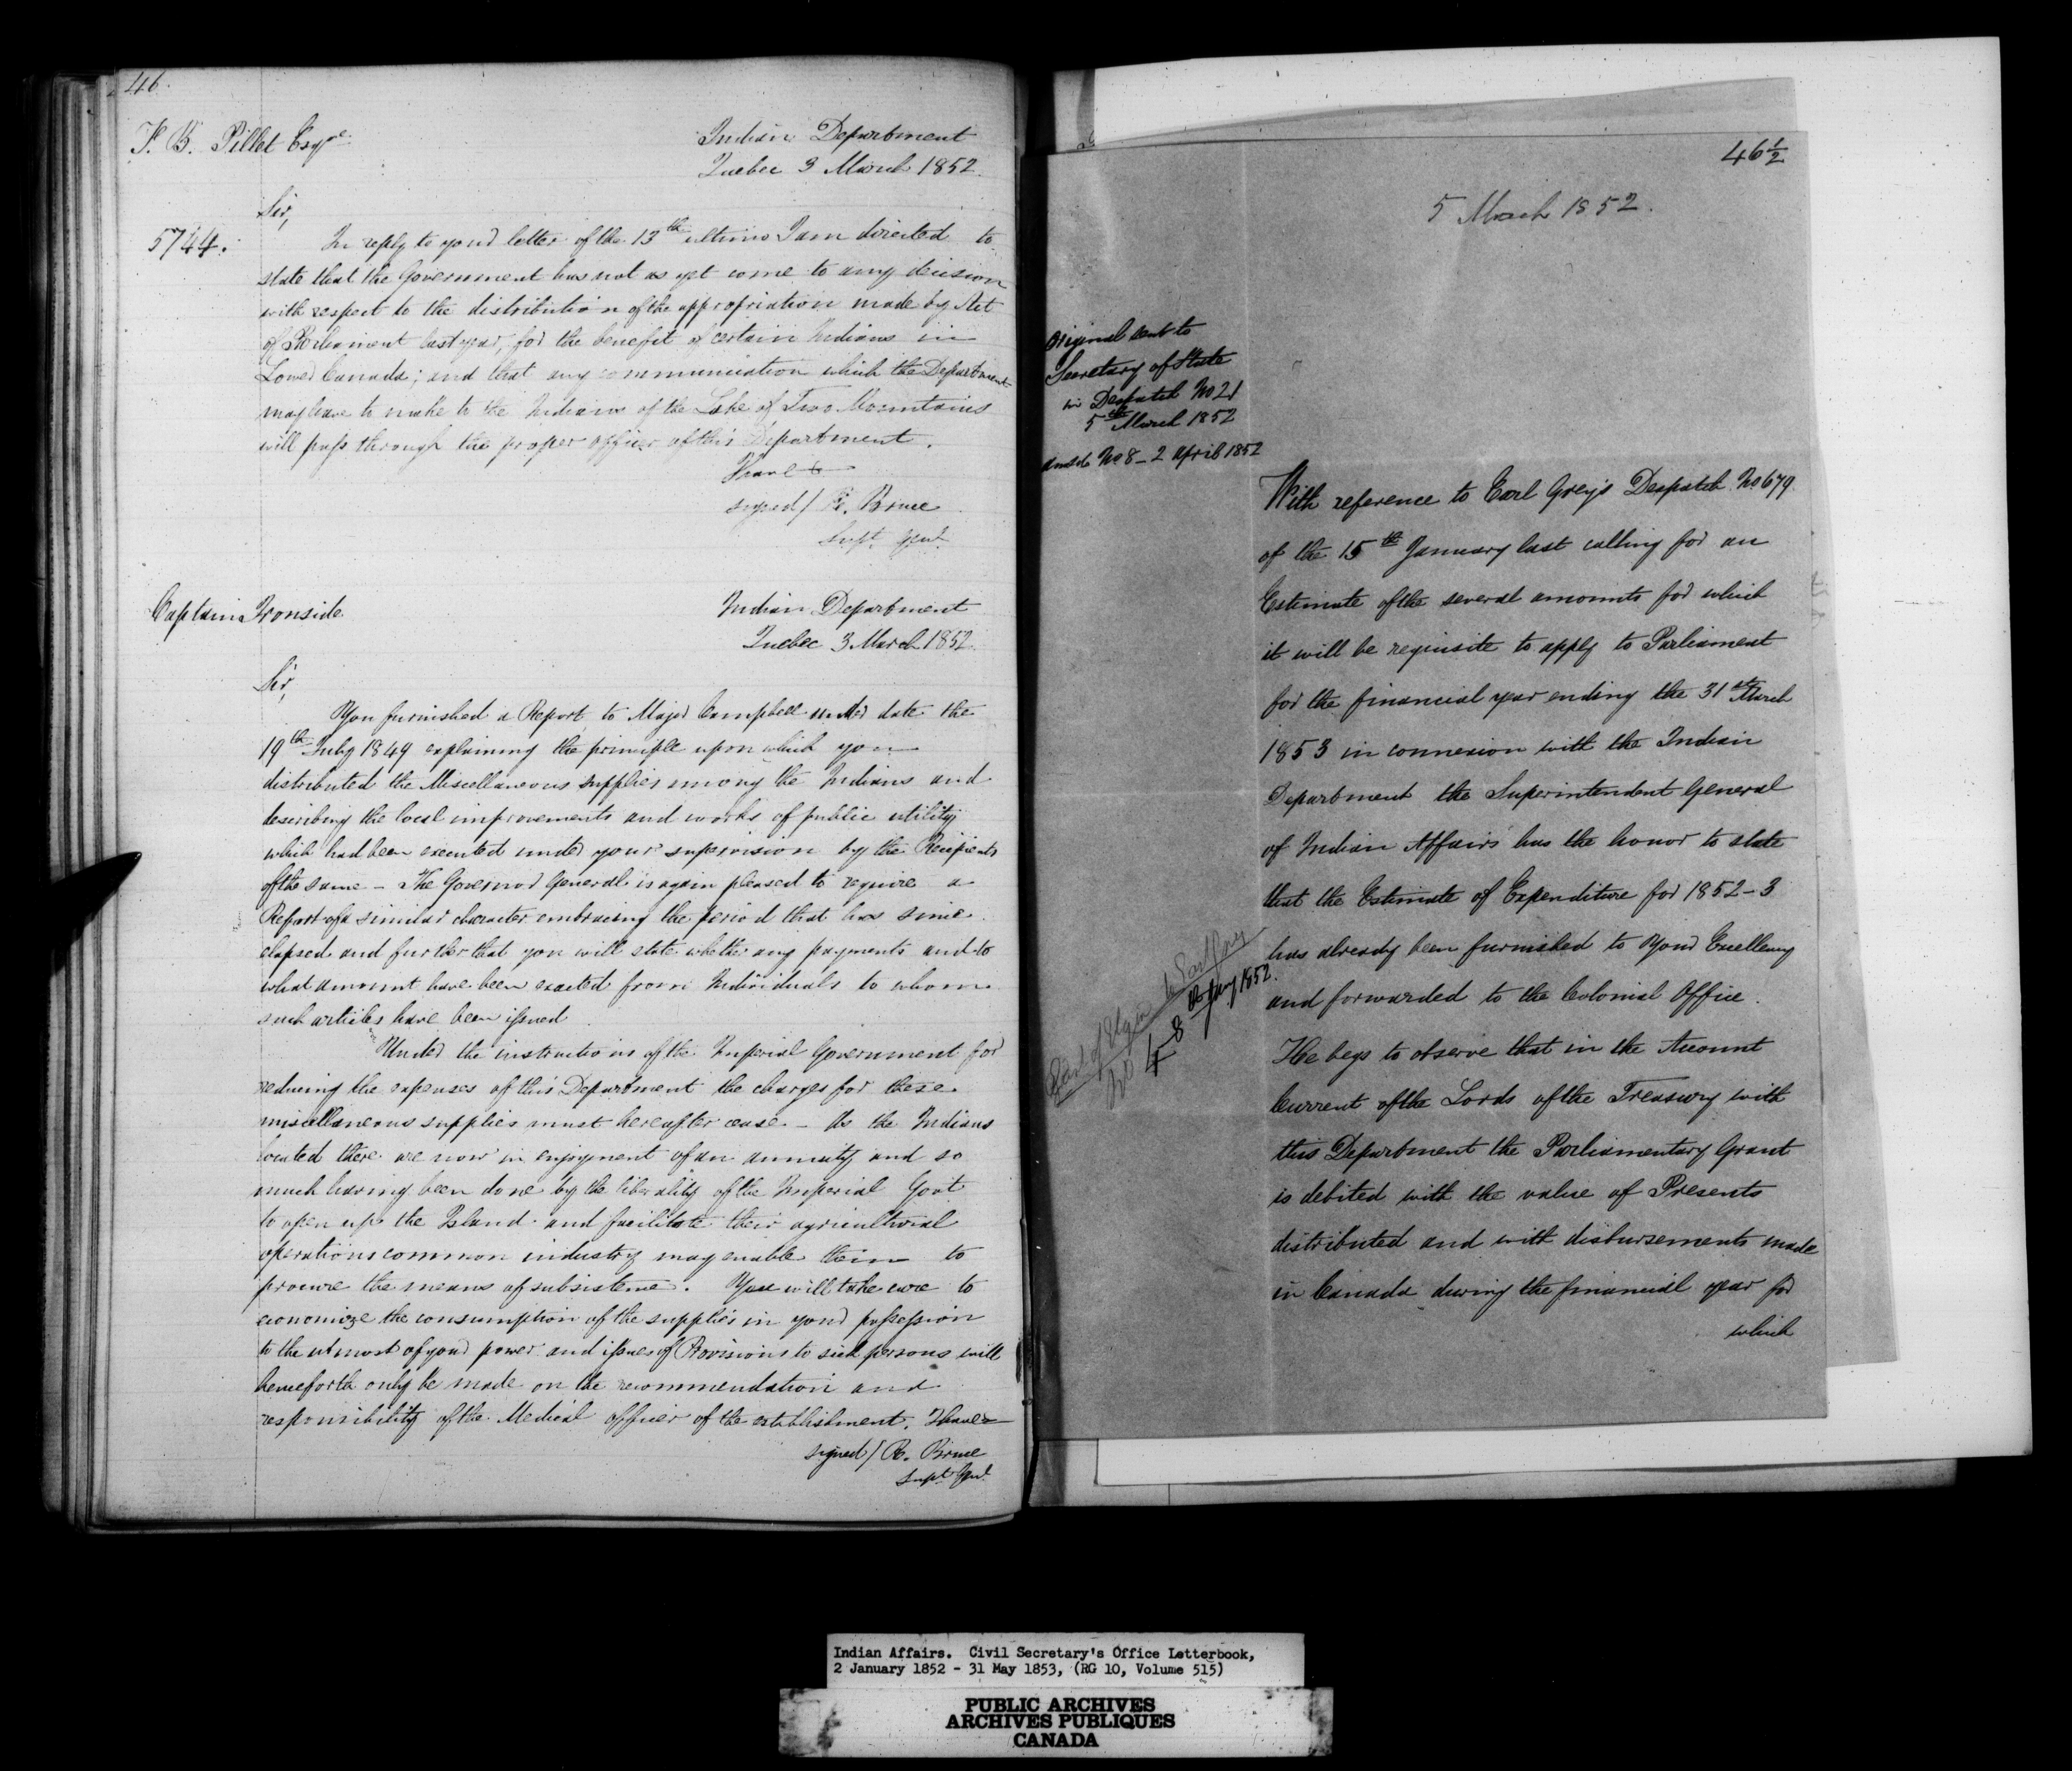 46.
F. B. Pillet Esqre
Indian Department
Quebec 3 March 1852.
Sir,
5744.
In reply to your letter of the 13th ultimo I am directed to
state that the Government has not as yet come to any decision
with respect to the distribution of the appropriation made by Act
of Parliament last year, for the benefit of certain Indians in
Lower Canada; and that any communication which the Department
may have to make to the Indians of the Lake of Two Mountains
will pass through the proper officer of this Department.
I have &
signed / R. Bruce
Supt Genl.
Captain Ironside
Indian Department
Quebec 3 March 1852.
Sir,
You furnished a Report to Major Campbell under date the
19th July 1849 explaining the principle upon which you
distributed the Miscellaneous supplies among the Indians and
describing the local improvements and works of public utility
which had been executed under your supervision by the Recipients
of the same - The Governor General is again pleased to require a
Report of a similar character embracing the period that has since
elapsed and further that you will state whether any payments and to
what amount have been exacted from Individuals to whom
such articles have been issued
Under the instructions of the Imperial Government for
reducing the expenses of this Department the charges for these
miscellaneous supplies must hereafter cease - As the Indians
located there are now in enjoyment of an annuity and so
much having been done by the liberality of the Imperial Govt
to open up the Island and facilitate their agricultural
operations common industry may enable them to
procure the means of subsistence. You will take care to
economize the consumption of the supplies in your possession
to the utmost of your power and issues of Provisions to sick persons will
henceforth only be made on the recommendation and
responsibility of the Medical officer of the establishment. I have &
signed / R. Bruce
Supt Genl.
46 1/2
5 March 1852.
Original sent to
Secretary of State
in Despatch No 21
5th March 1852
No 8 - 2 April 1852
With reference to Earl Grey's Despatch No 679.
of the 15th January last calling for an
Estimate of the several amounts for which
it will be requisite to apply to Parliament
for the financial year ending the 31st March
1853 in connexion with the Indian
Department the Superintendent General
of Indian Affairs has the honor to state
that the Estimate of Expenditure for 1852-3
has already been furnished to Your Excellency
and forwarded to the Colonial Office.
Earl of Elgin to Earl Grey
No 4 - 8th Jany 1852.
He begs to observe that in the Account
Current of the Lords of the Treasury with
this Department the Parliamentary Grant
is debited with the value of Presents
distributed and with disbursements made
in Canada during the financial year for
which
Indian Affairs. Civil Secretary's Office Letterbook,
2 January 1852 - 31 May 1853, (RG 10, Volume 515)
PUBLIC ARCHIVES
ARCHIVES PUBLIQUES
CANADA